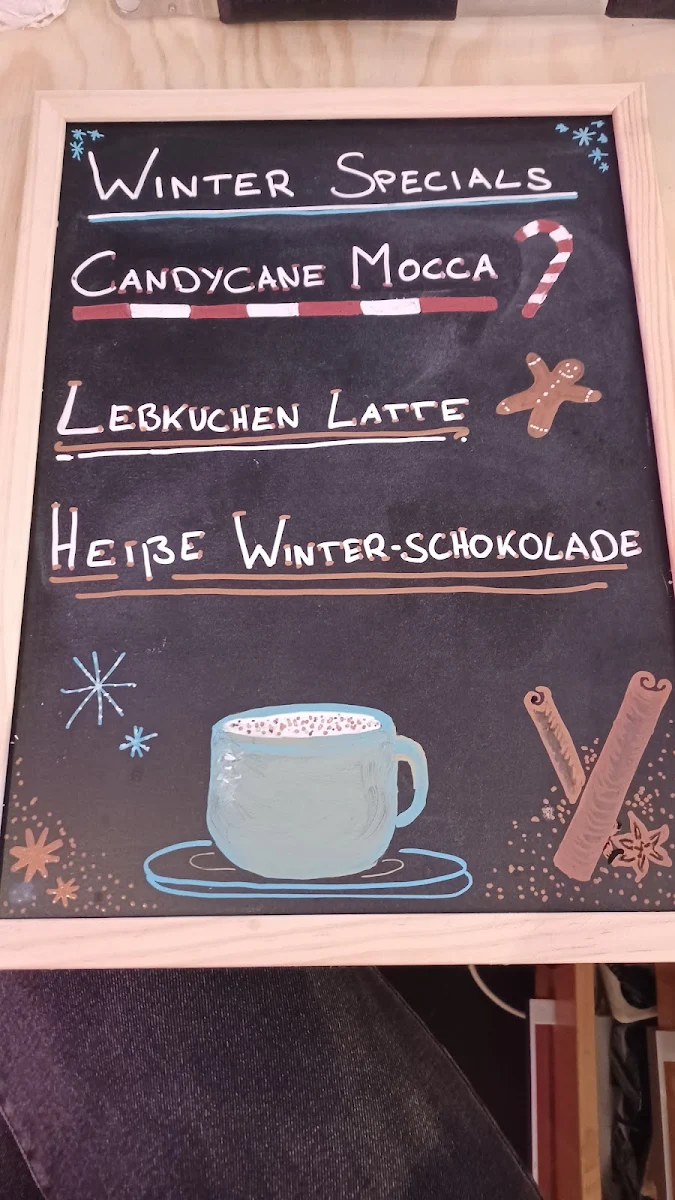 WINTER SPECIALS
CANDYCANE MOCCA
LEBKUCHEN LATTE
HEIßE WINTER-SCHOKOLADE